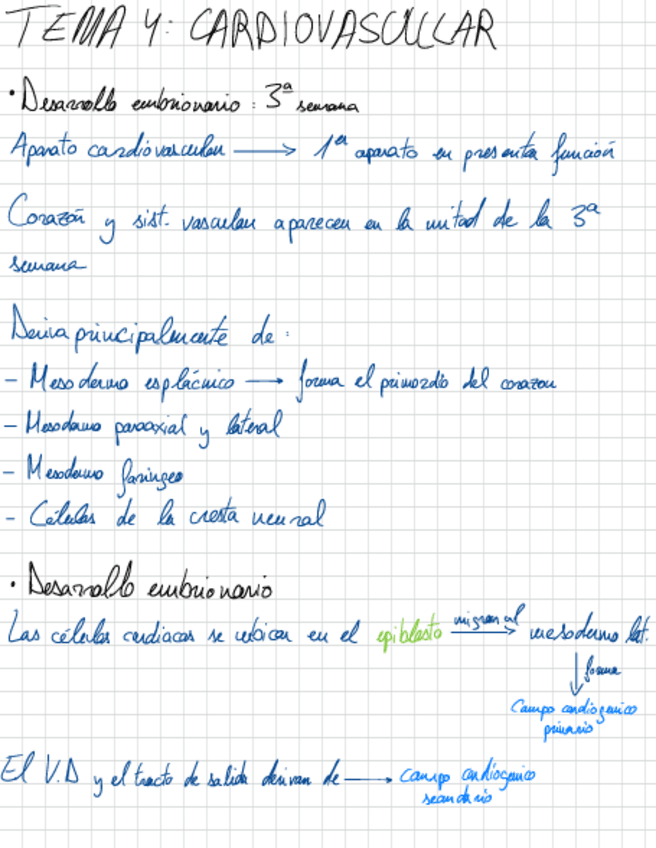 TEMA 4: CARDIOVASCULAR
• Desarrollo embrionario: 3ª semana
Aparato cardiovascular → 1er aparato en presentar función
Corazón y sist. vascular aparecen en la mitad de la 3ª
semana
Deriva principalmente de:
- Mesodermo esplácnico → forma el primordio del corazon
- Mesodermo paraaxial y lateral
- Mesodermo faringeo
- Células de la cresta neural
• Desarrollo embrionario
Las células cardiacas se ubican en el epiblasto migran al → mesodermo lat.
↓ forma
Campo cardiogenico
primario
El V.D y el tracto de salida derivan de → campo cardiogenico
secundario